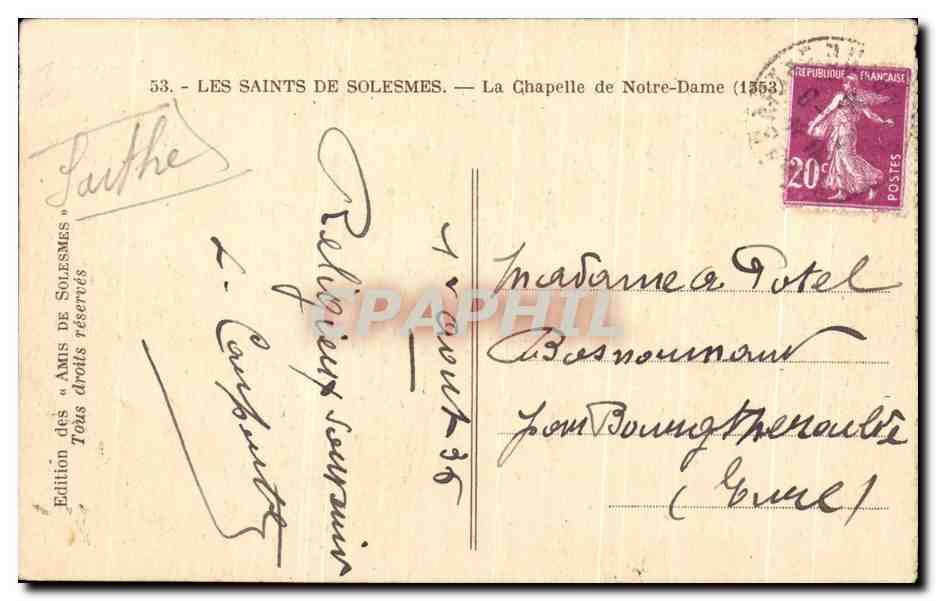 53. - LES SAINTS DE SOLESMES. — La Chapelle de Notre-Dame (1553)
REPUBLIQUE FRANÇAISE
20c
POSTES
Sarthe
Edition des « AMIS DE SOLESMES »
Tous droits réservés
août 36
Religieux souvenir
L. Carpentier
Madame A Potel
Bosnormand
par Bourgtheroulde
(Eure)
CPAPHIL